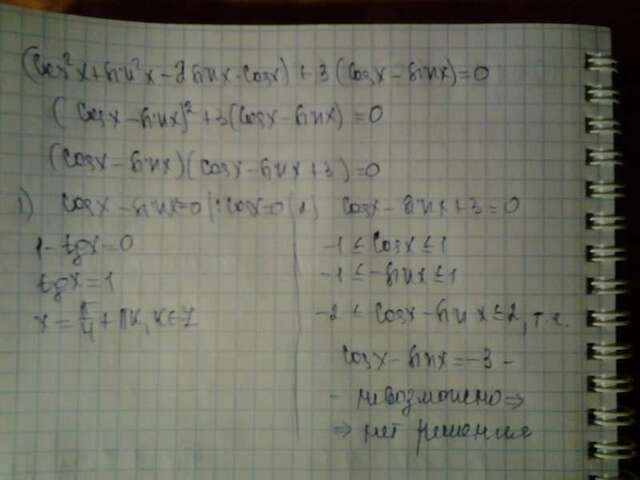 (cos²x+sin²x-2sinx·cosx)+3(cosx-sinx)=0
(cosx-sinx)²+3(cosx-sinx)=0
(cosx-sinx)(cosx-sinx+3)=0
1) cosx-sinx=0 |:cosx≠0
1-tgx=0
tgx=1
x=π/4+πk, k∈Z
2) cosx-sinx+3=0
-1≤cosx≤1
-1≤-sinx≤1
-2≤cosx-sinx≤2, т.к.
cosx-sinx=-3 -
- невозможно ⇒
⇒ нет решения